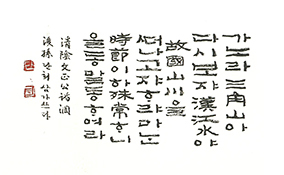 가노라三角山아
다시보자漢江水야
故國山川을
떠나고쟈하랴마는
時節이하殊常하니
올동말동하여라
清陰文正公詩調
後孫 삼가